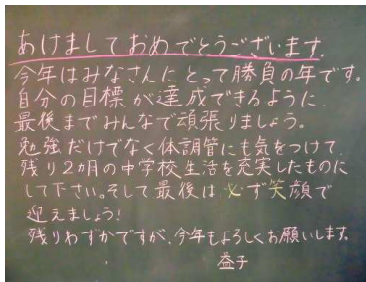 あけましておめでとうございます。
今年はみなさんにとって勝負の年です。
自分の目標が達成できるように
最後までみんなで頑張りましょう。
勉強だけでなく体調管にも気をつけて、
残り2カ月の中学校生活を充実したものに
して下さい。そして最後は必ず笑顔で
迎えましょう!
残りわずかですが、今年もよろしくお願いします。
益子